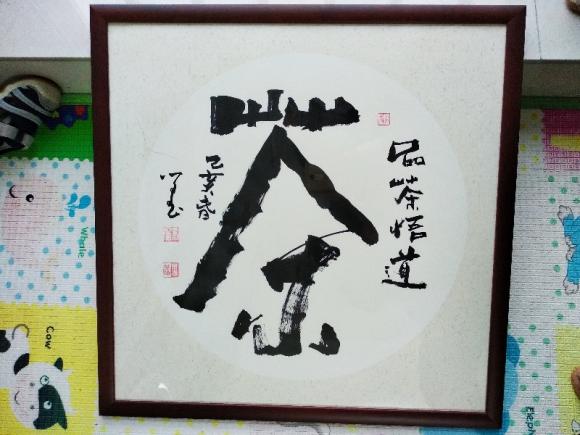 品茶悟道
茶
己亥春
Whale
Cow